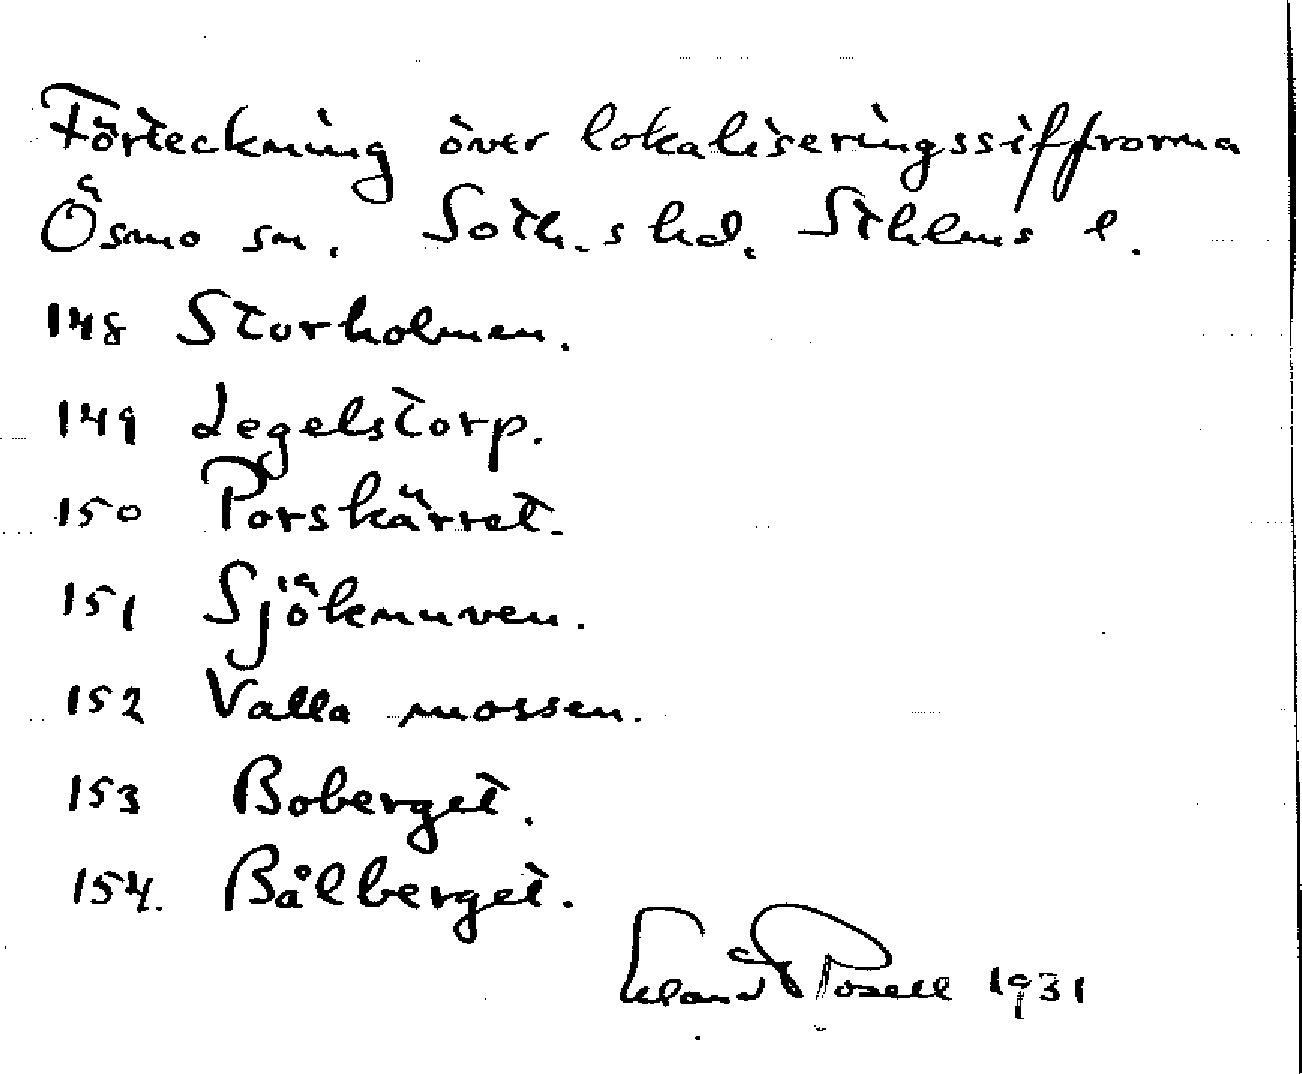 Förteckning över lokaliseringssiffrorna
Ösmo sn. Soth. s hd. Sthlms l.
148 Storholmen.
149 Legelstorp.
150 Porskärret.
151 Sjöknuven.
152 Valla mossen.
153 Boberget.
154. Bålberget.
Erland Rosell 1931